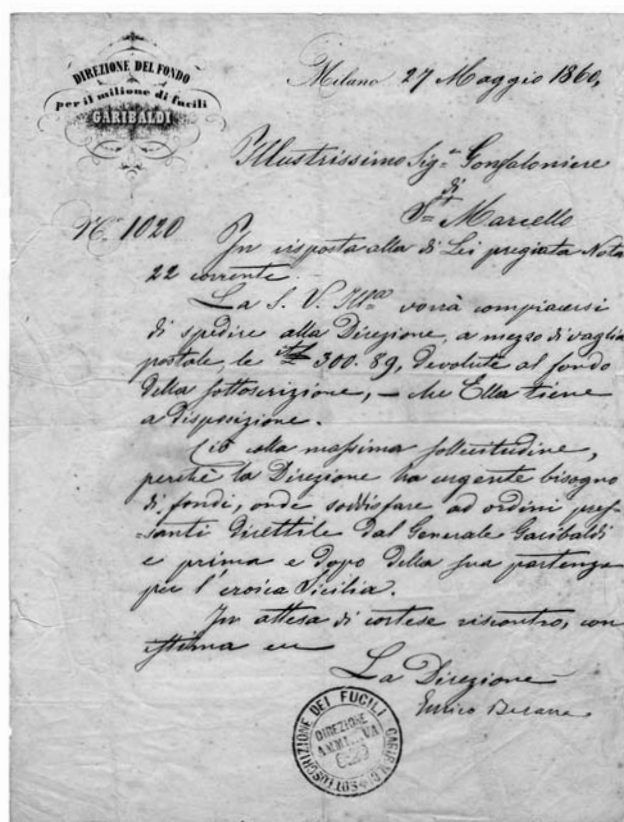 DIREZIONE DEL FONDO
per il milione di fucili
GARIBALDI
Milano 27 Maggio 1860,
Illustrissimo Sig.r Gonfaloniere
di
S.n Marcello
N.o 1020
In risposta alla di Lei pregiata Nota
22 corrente.
La S. V. Ill.ma vorrà compiacersi
di spedire alla Direzione, a mezzo di vaglia
postale, le 300.89, devolute al fondo
della sottoscrizione, – che Ella tiene
a disposizione.
Ciò colla massima sollecitudine,
perchè la Direzione ha urgente bisogno
di fondi, onde soddisfare ad ordini pres-
-santi direttile dal Generale Garibaldi
e prima e dopo della sua partenza
per l'eroica Sicilia.
In attesa di cortese riscontro, con
istima
La Direzione
Enrico Besana
SOTTOSCRIZIONE DEI FUCILI
DIREZIONE